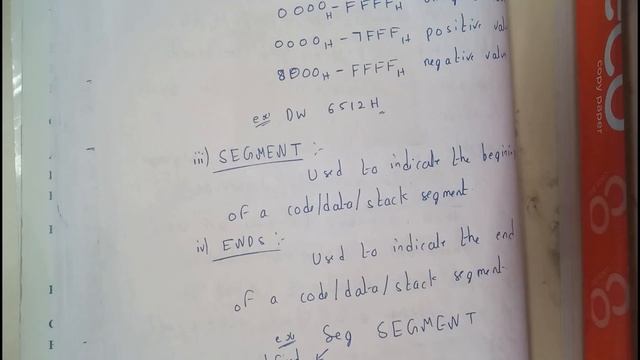 0000H-FFFFH
0000H-7FFFH positive
8000H-FFFFH negative
ex DW 6512H
iii) SEGMENT :-
Used to indicate the begini
of a code/data/stack segment
iv) ENDS :-
Used to indicate the end
of a code/data/stack segment.
ex Seg SEGMENT
copy paper
CO